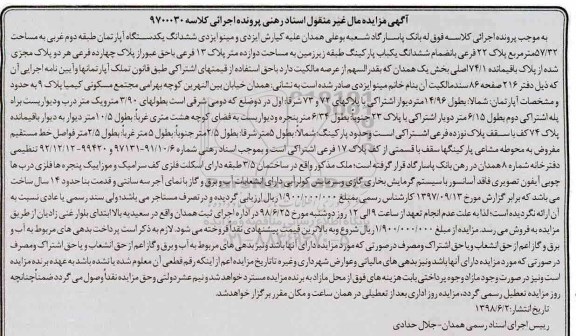 آگهی مزایده مال غیر منقول اسناد رهنی پرونده اجرائی کلاسه ۹۷۰۰۰۳۰
به موجب پرونده اجرائی کلاسه فوق له بانک پاسارگاد شعبه بوعلی همدان علیه کیارش ایزدی و مینو ایزدی ششدانگ یکدستگاه آپارتمان طبقه دوم غربی به مساحت
۵۷/۳۲ مترمربع پلاک ۲۲ فرعی بانضمام ششدانگ یکباب پارکینگ طبقه زیرزمین به مساحت دوازده متر پلاک ۱۳ فرعی باحق عبور از پلاک چهارده فرعی هر دو پلاک مجزی
شده از پلاک باقیمانده ۷۴/۱ اصلی بخش یک همدان که بقدرالسهم از عرصه مالکیت دارد باحق استفاده از قیمتهای اشتراکی طبق قانون تملک آپارتمانها و آیین نامه اجرایی آن
که ذیل دفتر ۲۱۶ صفحه ۸۶ سند مالکیت آن بنام خانم مینو ایزدی صادر شده است به نشانی: همدان خیابان بین النهرین کوچه بهرامی مجتمع مسکونی کیمیا پلاک ۹ به حدود
و مشخصات آپارتمان: شمالا: بطول ۱۴/۹۶ متر دیوار اشتراکی با پلاکهای ۷۴ و ۷۳ شرقا: اول در دو ضلع که دومی شرقی است بطولهای ۳/۹۰ متر و یک متر درب و دیواریست براه
پله اشتراکی دوم بطول ۶/۱۵ متر دو بار اشتراکی با پلاک ۲۳ جنوبا: بطول ۶/۳۴ متر پنجره و دیواریست به فضای کوچه هشت متری غربا: بطول ۱۰/۱۵ متر دیوار به دیوار باقیمانده
پلاک ۷۴ کف با سقف پلاک نوزده فرعی اشتراکی است و حدود پارکینگ شمالا: بطول ۵ متر شرقا: بطول ۲/۵ متر جنوبا: بطول ۵ متر غربا: بطول ۲/۵ متر فواصل خط مستقیم
مفروض به محوطه مشاعی پارکینگها سقف با قسمتی از کف پلاک ۱۷ فرعی اشتراکی است و بموجب سند رهنی شماره ۹۱/۱۰/۶-۹۷۱۳۱ و ۹۹۴۳۰-۹۲/۱۲/۱۲ تنظیمی
دفترخانه شماره ۸ همدان در رهن بانک پاسارگاد قرار گرفته است؛ ملک مذکور واقع در ساختمان ۳/۵ طبقه دارای اسکلت فلزی کف سرامیک و موزاییک پنجره ها فلزی درب ها
چوبی آیفون تصویری فاقد آسانسور با سیستم گرمایش بخاری گازی و سرمایش کولرآبی دارای انشعابات آب و برق و گاز با نمای آجر سه سانتی و قدمت بنا حدود ۱۴ سال ساخت
می باشد که برابر گزارش مورخ ۱۳۹۷/۰۹/۱۳ کارشناس رسمی بمبلغ ۱/۹۰۰/۰۰۰/۰۰۰ ریال ارزیابی گردیده و در تصرف مستاجر می باشد؛ ولی سند رسمی یا عادی نسبت به
آن ارائه نگردیده است؛ لذا به علت عدم انجام تعهد از ساعت ۹ الی ۱۲ روز دوشنبه مورخ ۹۸/۶/۲۵ در اداره اجرای ثبت همدان واقع در سعیدیه بالا ابتدای بلوار غنی زادیان از طریق
مزایده به فروش می رسد. مزایده از مبلغ ۱/۹۰۰/۰۰۰/۰۰۰ ریال شروع و به بالاترین قیمت پیشنهادی نقدا فروخته می شود. لازم به ذکر است پرداخت بدهی های مربوط به آب و
برق و گاز اعم از حق انشعاب و یا حق اشتراک و مصرف در صورتی که مورد مزایده دارای آنها باشد و نیز بدهی های مربوط به آب و برق و گاز اعم از حق انشعاب و یا حق اشتراک و مصرف
در صورتی که مورد مزایده دارای آنها باشد و نیز بدهی های مالیاتی و عوارض شهرداری و غیره تا تاریخ مزایده اعم از اینکه رقم قطعی آن معلوم شده یا نشده باشد به عهده برنده مزایده
است و نیز در صورت وجود مازاد وجوه پرداختی بابت هزینه های فوق از محل مازاد به برنده مزایده مسترد خواهد شد و نیم عشر دولتی و حق مزایده نقدا وصول می گردد ضمنا چنانچه
روز مزایده تعطیل رسمی گردد، مزایده روز اداری بعد از تعطیلی در همان ساعت و مکان مقرر برگزار خواهد شد.
تاریخ انتشار: ۱۳۹۸/۶/۲
رییس اجرای اسناد رسمی همدان-جلال حدادی